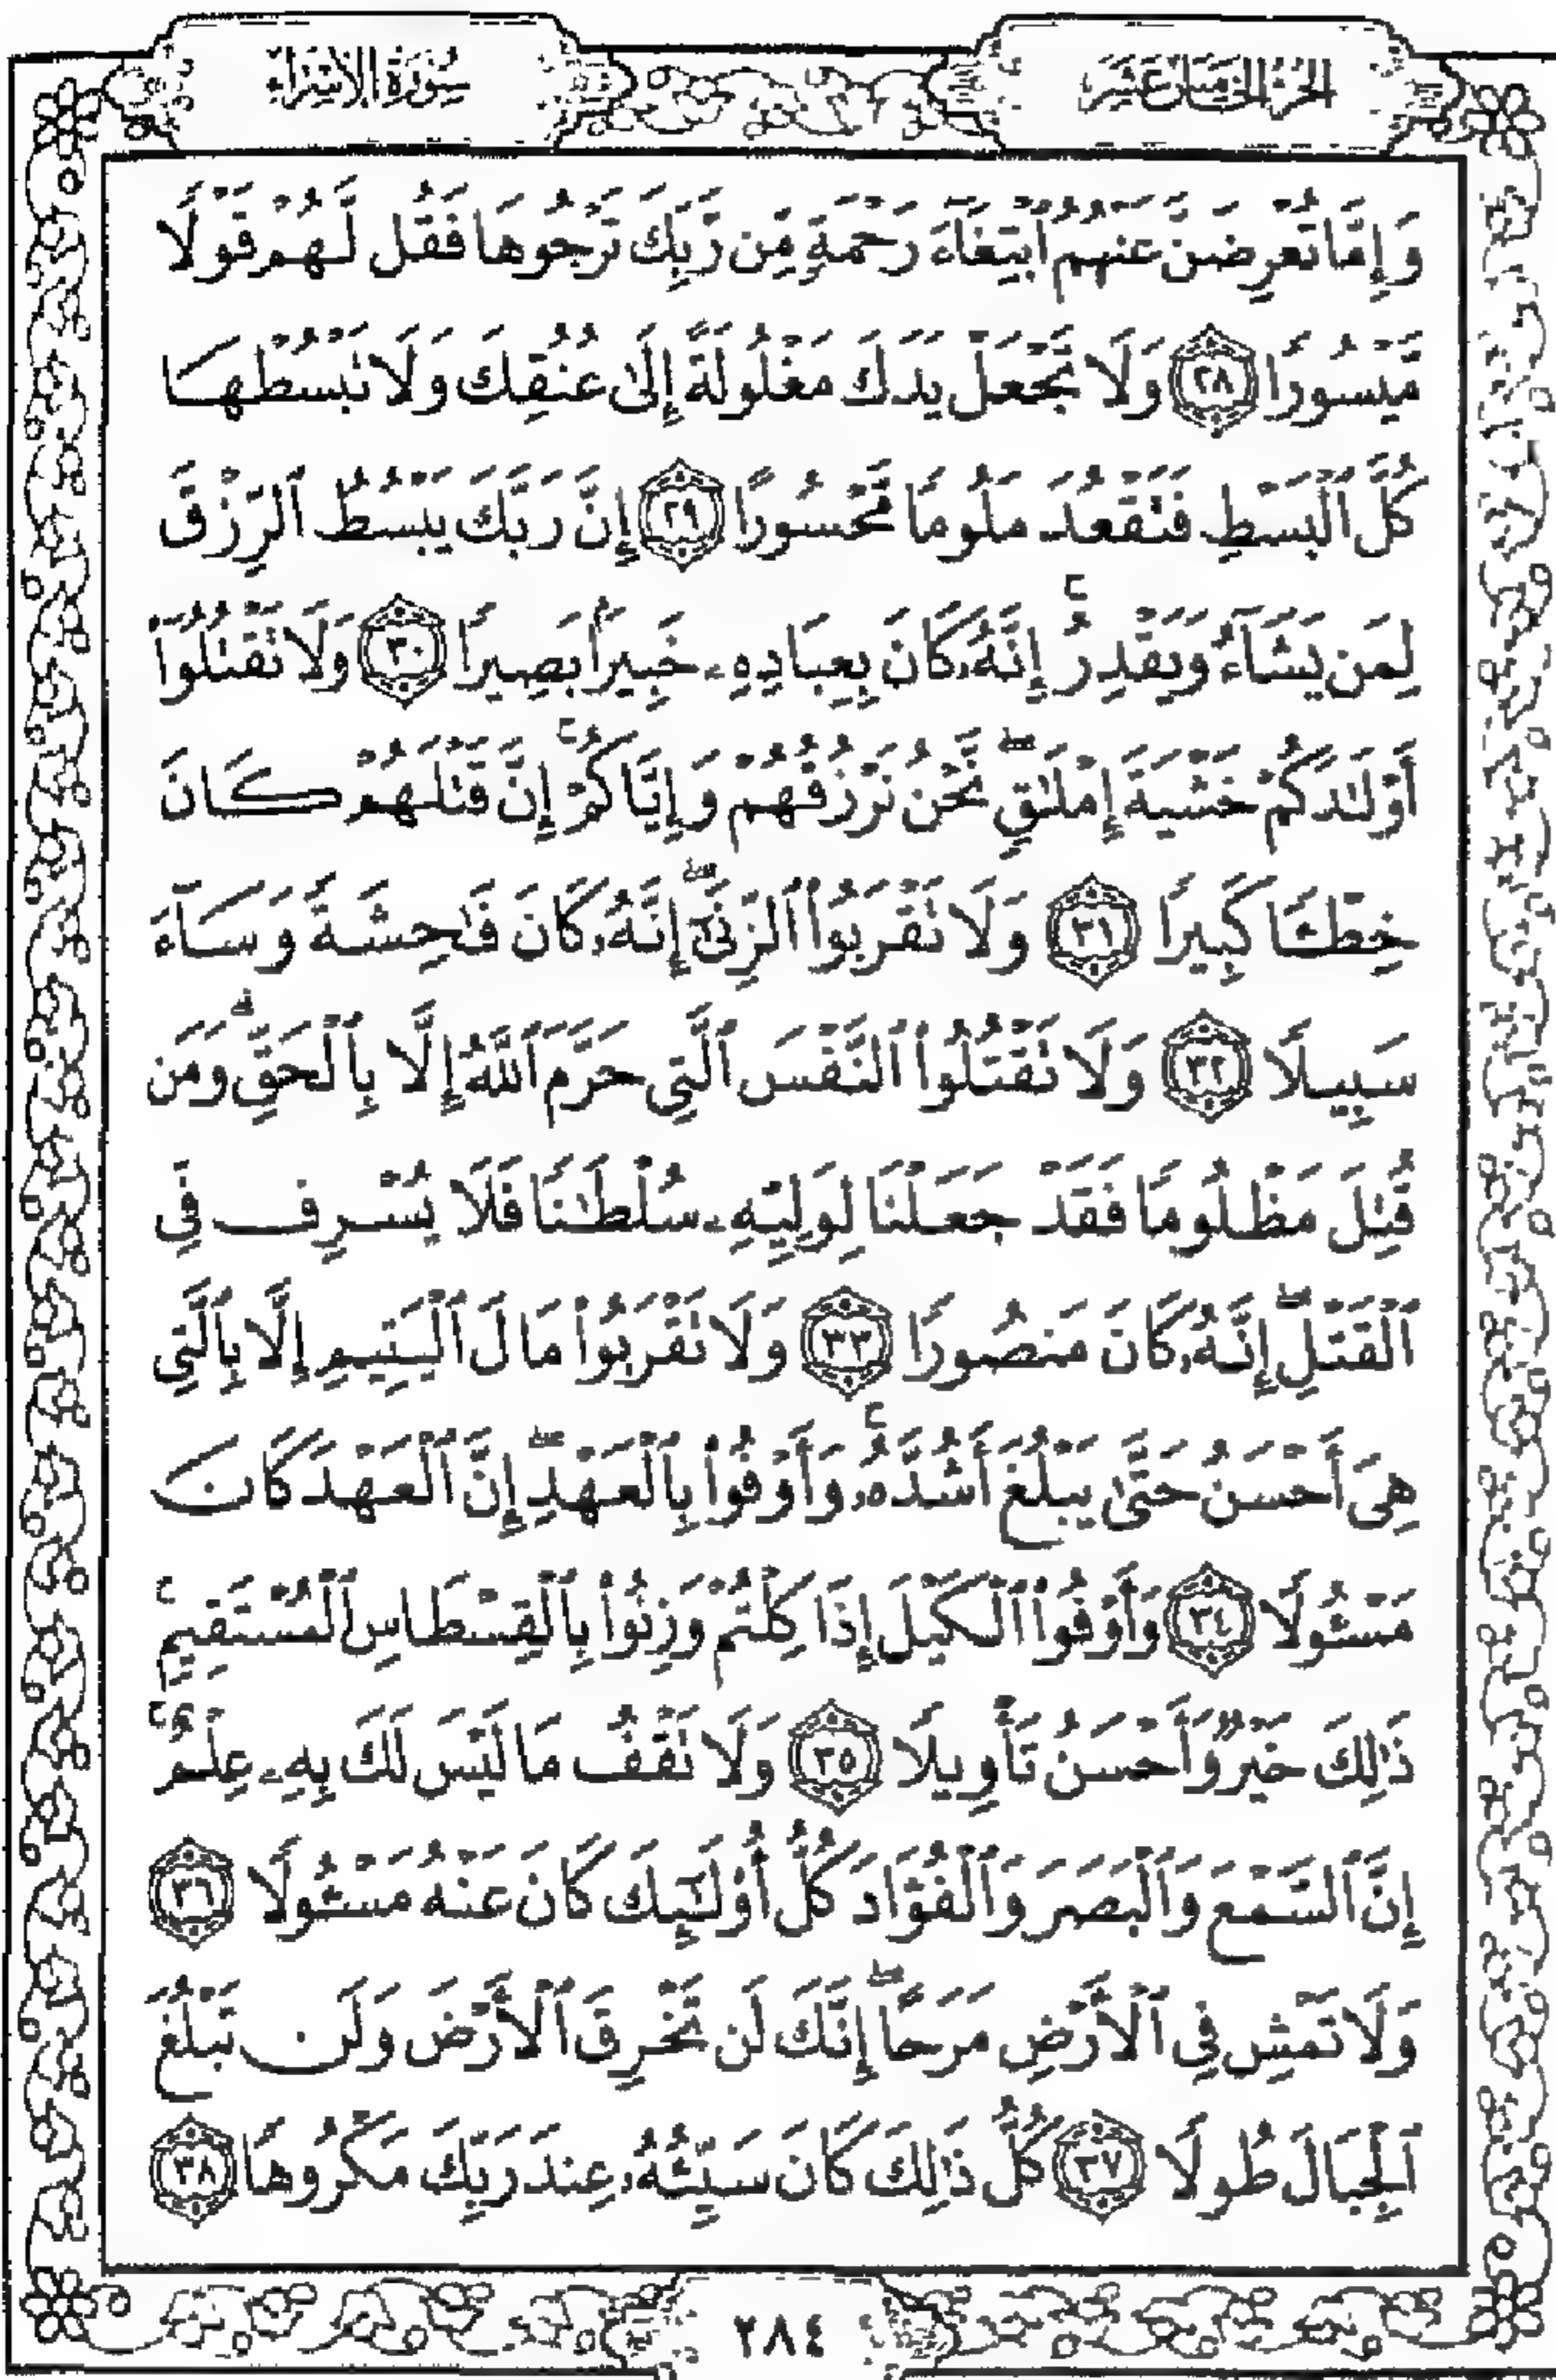 الجزء الخامس عشر
سورة الإسراء
وَإِمَّا تُعْرِضَنَّ عَنْهُمُ ٱبْتِغَآءَ رَحْمَةٍ مِّن رَّبِّكَ تَرْجُوهَا فَقُل لَّهُمْ قَوْلًا
مَّيْسُورًا ٢٨ وَلَا تَجْعَلْ يَدَكَ مَغْلُولَةً إِلَىٰ عُنُقِكَ وَلَا تَبْسُطْهَا
كُلَّ ٱلْبَسْطِ فَتَقْعُدَ مَلُومًا مَّحْسُورًا ٢٩ إِنَّ رَبَّكَ يَبْسُطُ ٱلرِّزْقَ
لِمَن يَشَآءُ وَيَقْدِرُ ۚ إِنَّهُۥ كَانَ بِعِبَادِهِۦ خَبِيرًۢا بَصِيرًا ٣٠ وَلَا تَقْتُلُوٓا۟
أَوْلَٰدَكُمْ خَشْيَةَ إِمْلَٰقٍ ۖ نَّحْنُ نَرْزُقُهُمْ وَإِيَّاكُمْ ۚ إِنَّ قَتْلَهُمْ كَانَ
خِطْـًٔا كَبِيرًا ٣١ وَلَا تَقْرَبُوا۟ ٱلزِّنَىٰٓ ۖ إِنَّهُۥ كَانَ فَٰحِشَةً وَسَآءَ
سَبِيلًا ٣٢ وَلَا تَقْتُلُوا۟ ٱلنَّفْسَ ٱلَّتِى حَرَّمَ ٱللَّهُ إِلَّا بِٱلْحَقِّ ۗ وَمَن
قُتِلَ مَظْلُومًا فَقَدْ جَعَلْنَا لِوَلِيِّهِۦ سُلْطَٰنًا فَلَا يُسْرِف فِّى
ٱلْقَتْلِ ۖ إِنَّهُۥ كَانَ مَنصُورًا ٣٣ وَلَا تَقْرَبُوا۟ مَالَ ٱلْيَتِيمِ إِلَّا بِٱلَّتِى
هِىَ أَحْسَنُ حَتَّىٰ يَبْلُغَ أَشُدَّهُۥ ۚ وَأَوْفُوا۟ بِٱلْعَهْدِ ۖ إِنَّ ٱلْعَهْدَ كَانَ
مَسْـُٔولًا ٣٤ وَأَوْفُوا۟ ٱلْكَيْلَ إِذَا كِلْتُمْ وَزِنُوا۟ بِٱلْقِسْطَاسِ ٱلْمُسْتَقِيمِ ۚ
ذَٰلِكَ خَيْرٌ وَأَحْسَنُ تَأْوِيلًا ٣٥ وَلَا تَقْفُ مَا لَيْسَ لَكَ بِهِۦ عِلْمٌ ۚ
إِنَّ ٱلسَّمْعَ وَٱلْبَصَرَ وَٱلْفُؤَادَ كُلُّ أُو۟لَٰٓئِكَ كَانَ عَنْهُ مَسْـُٔولًا ٣٦
وَلَا تَمْشِ فِى ٱلْأَرْضِ مَرَحًا ۖ إِنَّكَ لَن تَخْرِقَ ٱلْأَرْضَ وَلَن تَبْلُغَ
ٱلْجِبَالَ طُولًا ٣٧ كُلُّ ذَٰلِكَ كَانَ سَيِّئُهُۥ عِندَ رَبِّكَ مَكْرُوهًا ٣٨
٢٨٤